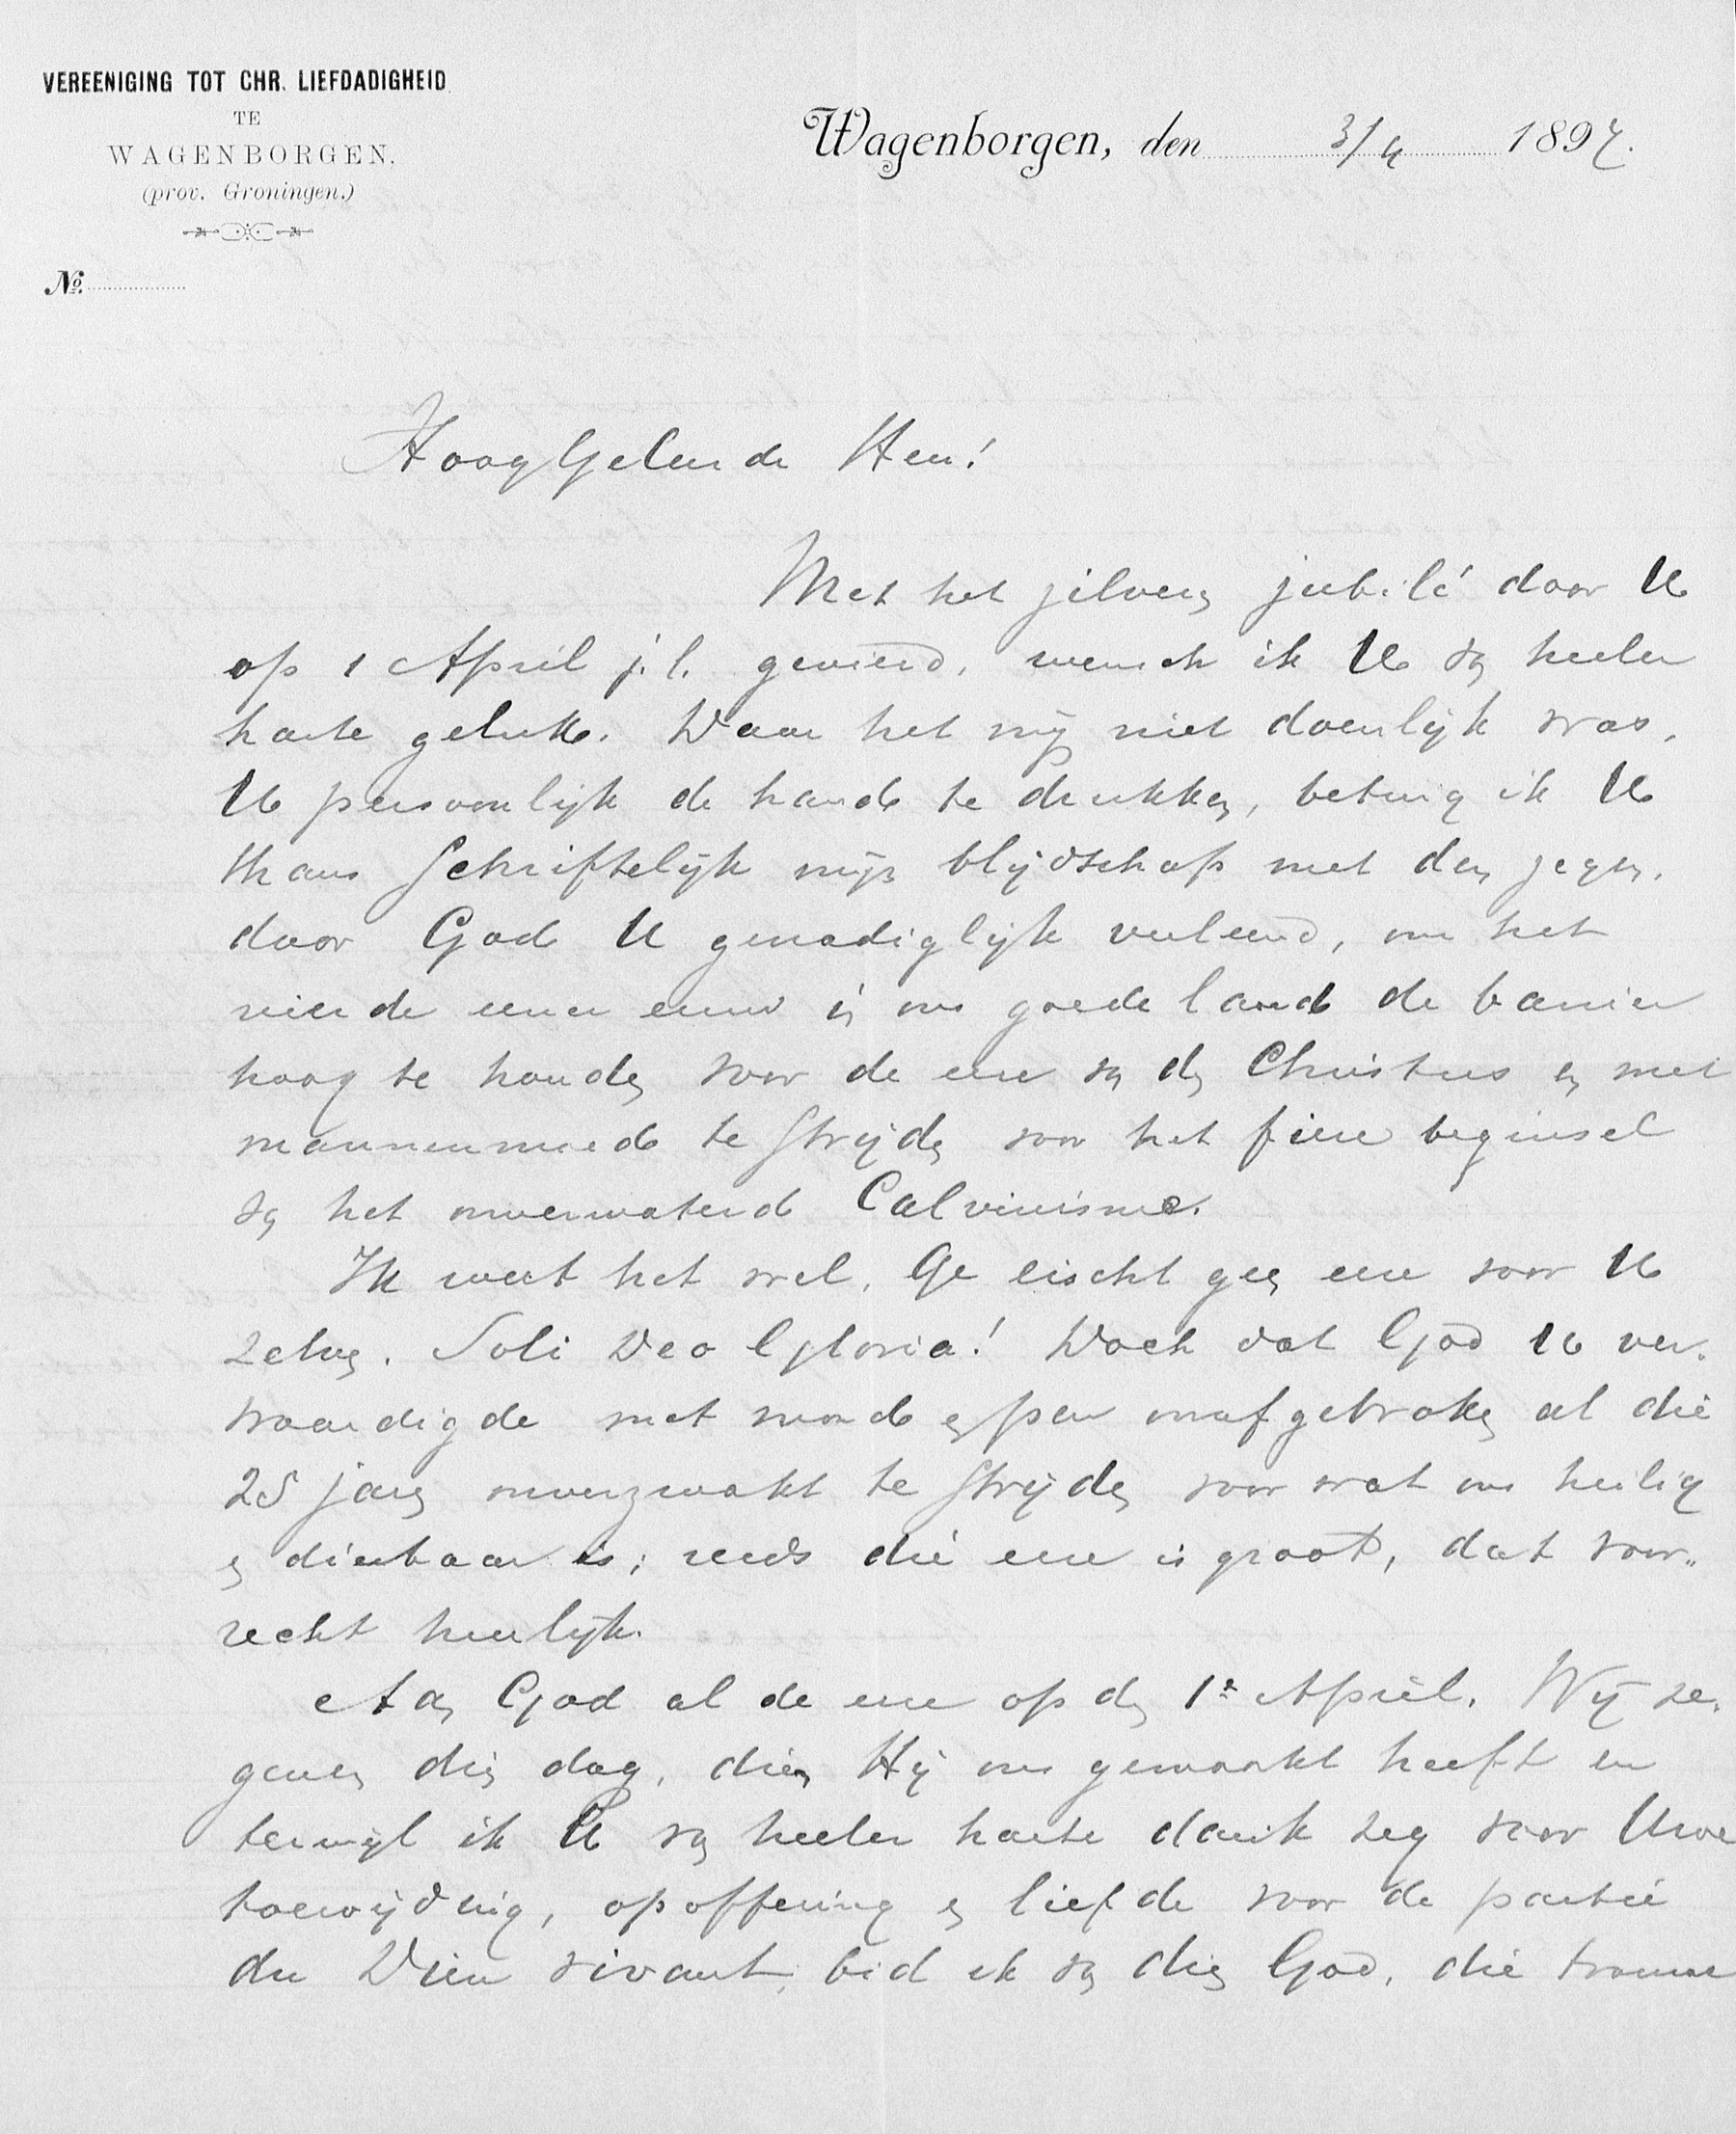 VEREENIGING TOT CHR. LIEFDADIGHEID
TE
WAGENBORGEN,
(prov. Groningen.)
No.
Wagenborgen, den 3/4 1897.
HoogGeleerde Heer!
Met het zilveren jubilé door U
op 1 April j.l. gevierd, wensch ik U van heeler
harte geluk. Waar het mij niet doenlijk was,
U persoonlijk de hand te drukken, betuig ik U
thans schriftelijk mijn blijdschap met den zegen,
door God U genadiglijk verleend, om het
vierde eener eeuw in ons goede land de banier
hoog te houden voor de eer van den Christus en met
mannenmoed te strijden voor het fiere beginsel
van het onverwaterd Calvinisme.
Ik weet het wel, Ge eischt geen eer voor U
zelven. Soli Deo Gloria! Doch dat God U ver-
waardigde met mond en pen onafgebroken al die
25 jaren onverzwakt te strijden voor wat ons heilig
en dierbaar is; reeds die eer is groot, dat voor-
recht heerlijk.
Aan God al de eer op den 1n April. Wij ze-
genen dien dag, dien Hij ons gemaakt heeft en
terwijl ik U van heeler harte dank zeg voor Uwe
toewijding, opoffering en liefde voor de partie
du Dieu vivant, bid ik van dien God, die trouwe